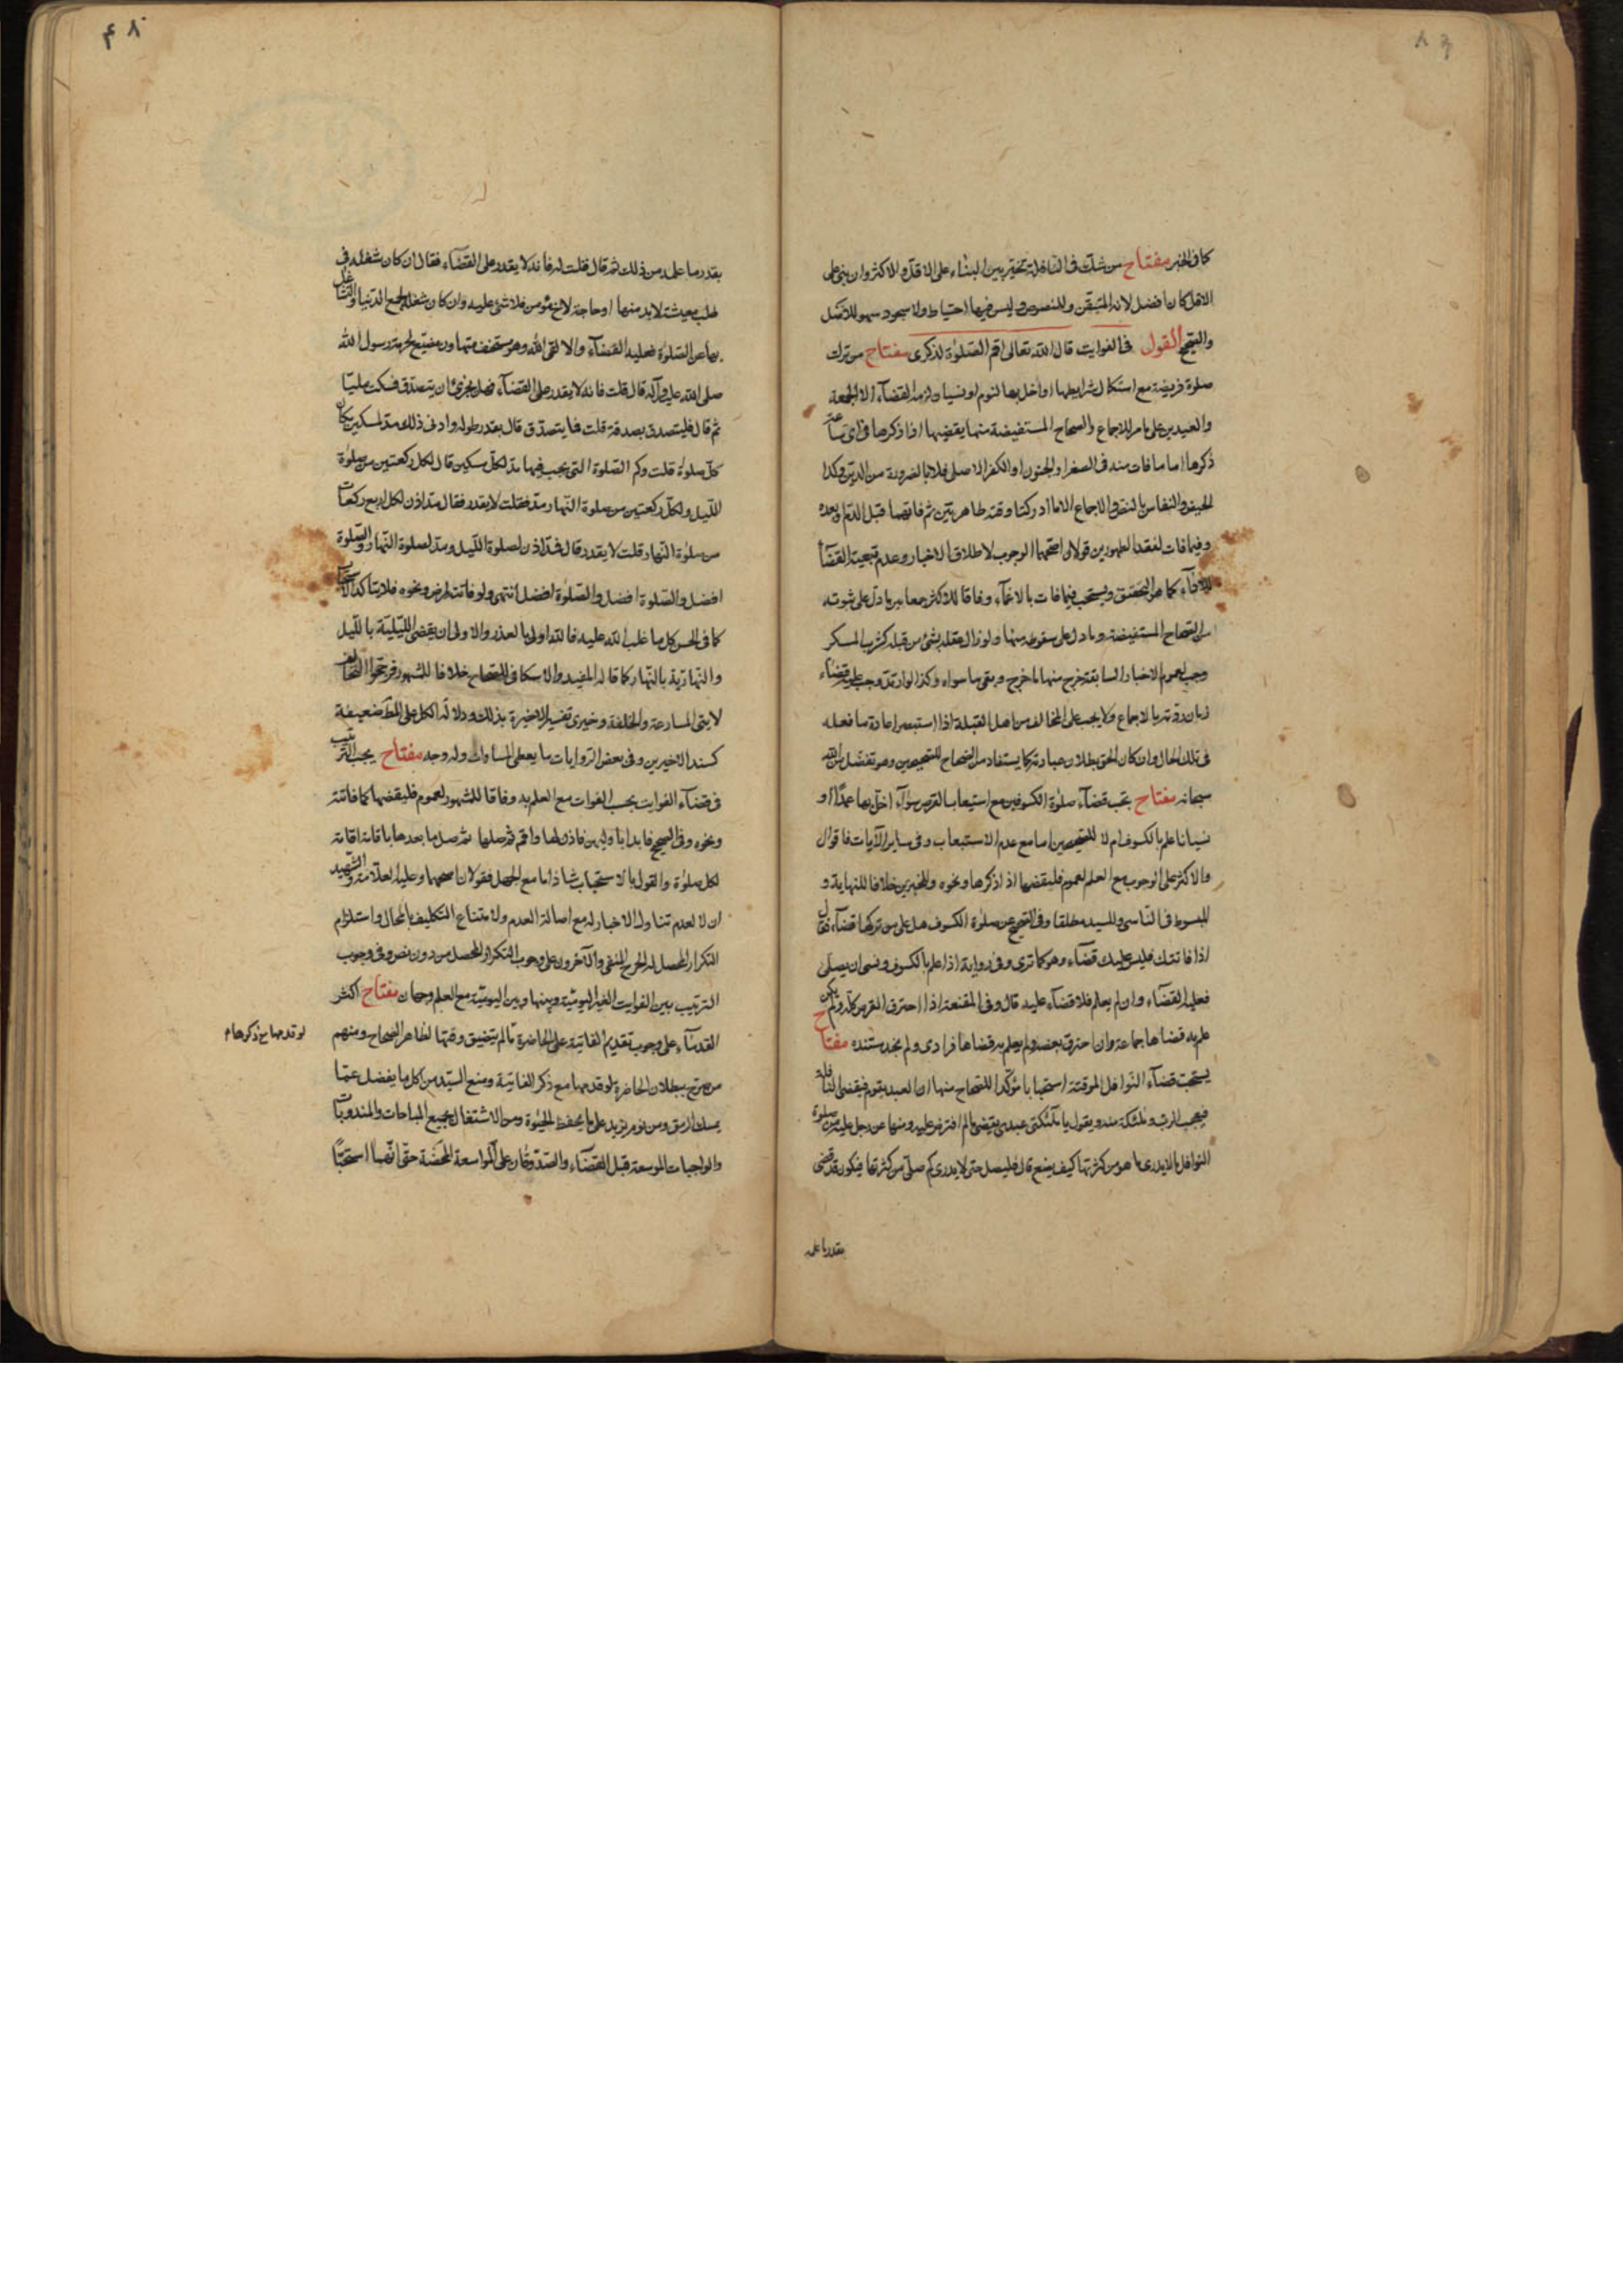 كما فى الخبر مفتاح من شك فى النافلة تخير بين البناء على الاقل والاكثر وان بنى على
الاقل كان افضل لانه المتيقن وللنصوص وليس فيها احتياط ولا سجود سهو للاصل
والصحيح القول فى الفوايت قال الله تعالى اقم الصلوة لذكرى مفتاح من ترك
صلوة فريضة مع استكمال شرايطها او اخل بها لنوم او نسيان لزمه القضاء الا الجمعة
والعيدين على ما مر للاجماع والصحاح المستفيضة منها يقضيها اذا ذكرها فى اى ساعة
ذكرها اما ما فات منه فى الصغر او الجنون او الكفر الاصلى فلا بالضرورة من الدين وكذا
الحيض والنفاس بالنص والاجماع الا ما ادركتا وقته طاهرتين ثم فاتهما قبل الدم او بعده
وفيما فات لفقد الطهورين قولان اصحهما الوجوب لاطلاق الاخبار وعدم تبعية القضاء
للاداء كما هو التحقيق ويستحب فيما فات بالاغماء وفاقا للاكثر جمعا بين ما دل على ثبوته
من الصحاح المستفيضة وما دل على سقوطه منها ولو زال عقله بشئ من قبله كشرب المسكر
وجب لعموم الاخبار السابقة خرج منها ما خرج وبقى ما سواه وكذا لو ارتد وجب عليه قضاء
زمان ردته بالاجماع ولا يجب على المخالف من اهل القبلة اذا استبصر اعادة ما فعله
فى تلك الحال وان كان الحق بطلان عبادته كما يستفاد من الصحاح للصحيحين وهو تفضل من الله
سبحانه مفتاح يجب قضاء صلوة الكسوفين مع استيعاب القرص سواء اخل بها عمدا او
نسيانا علم بالكسوف ام لا للصحيحين اما مع عدم الاستيعاب وفى ساير الآيات فاقوال
والاكثر على الوجوب مع العلم لعموم فليقضها اذا ذكرها ونحوه وللخبرين خلافا للنهاية و
المبسوط فى الناسى وللسيد مطلقا وفى الصحيح عن صلوة الكسوف هل على من تركها قضاء فقال
اذا فاتتك فليس عليك قضاء وهو كما ترى وفى رواية اذا علم بالكسوف ونسى ان يصلى
فعليه القضاء وان لم يعلم فلا قضاء عليه قال وفى المقنعة اذا احترق القرص كله ولم يكن
علم به قضاها جماعة وان احترق بعضه ولم يعلم به قضاها فرادى ولم نجد مستنده مفتاح
يستحب قضاء النوافل الموقتة استحبابا مؤكدا للصحاح منها ان العبد يقوم فيقضى النافلة
فيعجب الرب وملئكته منه ويقول يا ملئكتى عبدى يقضى ما لم افترض عليه ومنها عن رجل عليه من صلوة
النوافل ما لا يدرى ما هو من كثرتها كيف يصنع قال فليصل حتى لا يدرى كم صلى من كثرتها فيكون قد قضى
بقدر ما علمه
بقدر ما علمه من ذلك ثم قال قلت له فانه لا يقدر على القضاء فقال ان كان شغله فى
طلب معيشة لا بد منها او حاجة لاخ مؤمن فلا شئ عليه وان كان شغله لجمع الدنيا والتشاغل
بها عن الصلوة فعليه القضاء والا لقى الله وهو مستخف متهاون مضيع لحرمة رسول الله
صلى الله عليه وآله قال قلت فانه لا يقدر على القضاء فهل يجزى ان يتصدق فسكت مليا
ثم قال فليتصدق بصدقة قلت فما يتصدق قال بقدر طوله وادنى ذلك مد لمسكين مكان
كل صلوة قلت وكم الصلوة التى يجب فيها مد لكل مسكين قال لكل ركعتين من صلوة
الليل ولكل ركعتين من صلوة النهار مد فقلت لا يقدر فقال مد اذن لكل اربع ركعات
من صلوة النهار قلت لا يقدر قال فمد اذن لصلوة الليل ومد لصلوة النهار والصلوة
افضل والصلوة افضل والصلوة افضل انتهى ولو فاتته لمرض ونحوه فلا يتاكد الاستحباب
كما فى الحسن كل ما غلب الله عليه فالله اولى بالعذر والاولى ان يقضى الليلية بالليل
والنهارية بالنهار كما قاله المفيد والاسكافى للصحاح خلافا للمشهور فرجحوا التخالف
لآيتى المسارعة والخلفة وخبرى تفسير الاخيرة بذلك ودلالة الكل على المط ضعيفة
كسند الاخيرين وفى بعض الروايات ما يعطى المساواة وله وجه مفتاح يجب الترتيب
فى قضاء الفوايت بحسب الفوات مع العلم به وفاقا للمشهور لعموم فليقضها كما فاتته
ونحوه وفى الصحيح فابدا باولهن فاذن لها واقم ثم صلها ثم صل ما بعدها باقامة اقامة
لكل صلوة والقول بالاستحباب شاذ اما مع الجهل فقولان اصحهما وعليه العلامة والشهيد
ان لا لعدم تناول الاخبار له مع اصالة العدم ولامتناع التكليف بالمحال واستلزام
التكرار المحصل له الحرج المنفى والآخرون على وجوب التكرار المحصل من دون نص وفى وجوب
الترتيب بين الفوايت الغير اليومية وبينها وبين اليومية مع العلم وجهان مفتاح اكثر
القدماء على وجوب تقديم الفائتة على الحاضرة ما لم يتضيق وقتها لظاهر الصحاح ومنهم
من صرح ببطلان الحاضرة لو قدمها مع ذكر الفائتة ومنع السيد من اكل ما يفضل عما
يمسك الرمق ومن نوم يزيد على ما يحفظ الحيوة ومن الاشتغال بجميع المباحات والمندوبات
والواجبات الموسعة قبل القضاء والصدوقان على المواسعة المحضة حتى انهما استحبا